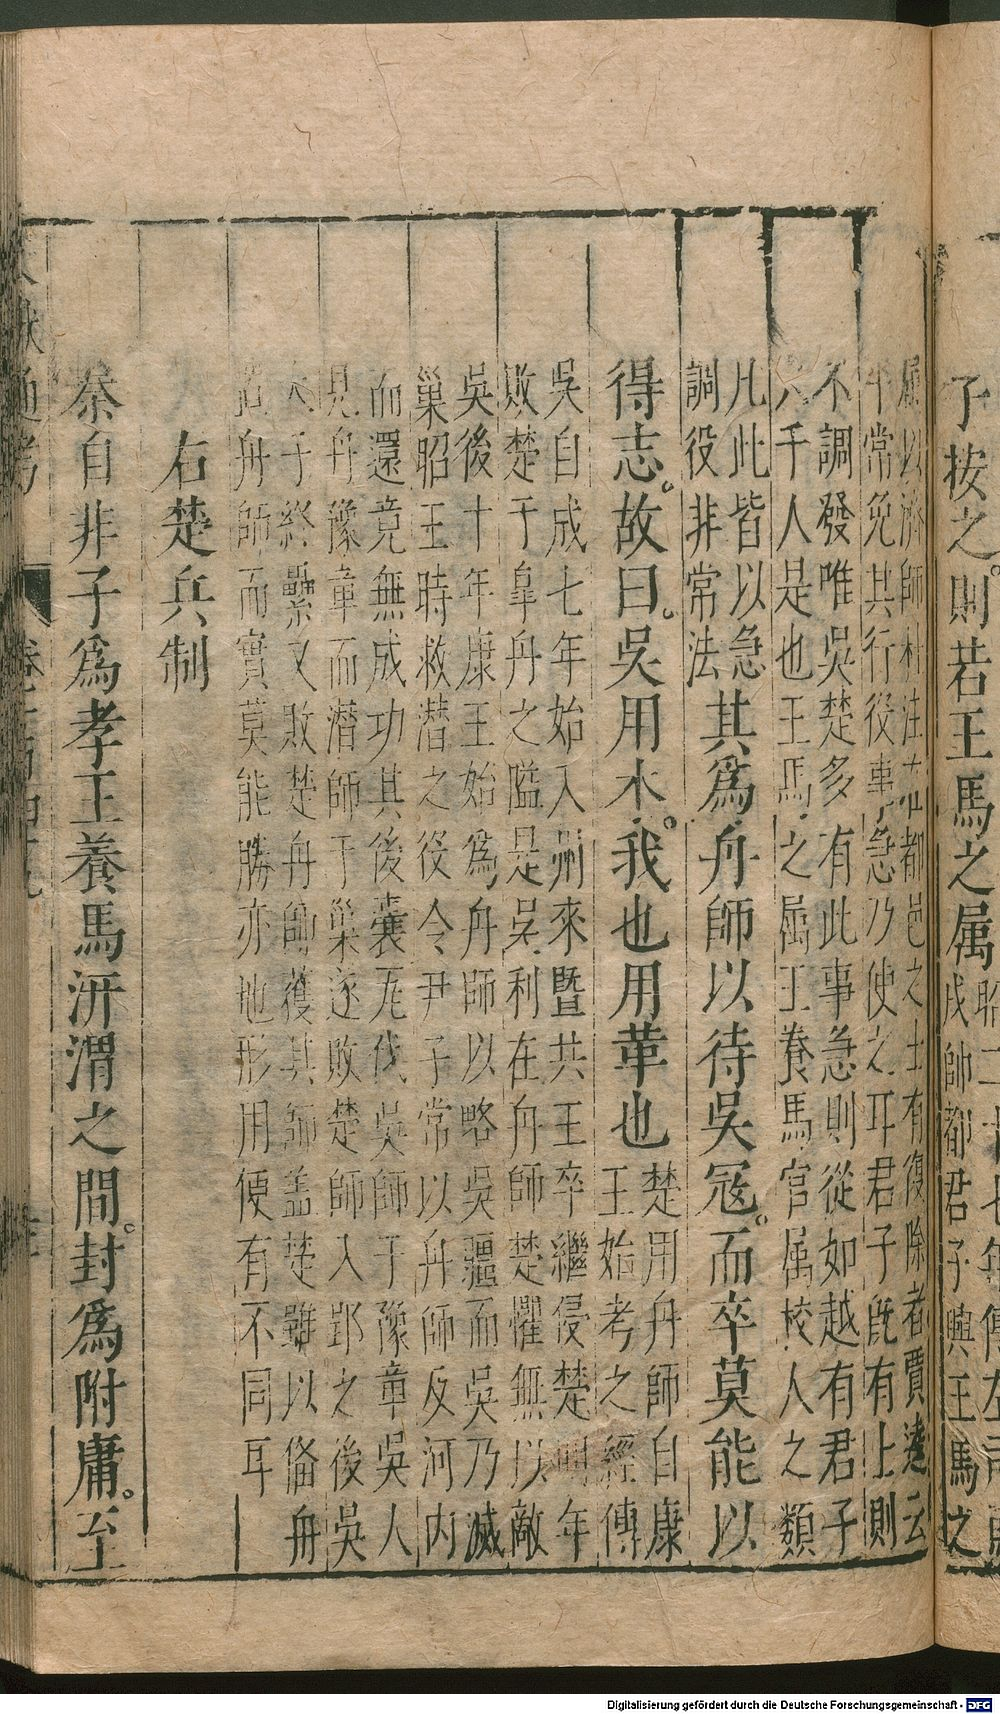 子按之。則若王馬之属昭二十七年傳左司馬
戌帥都君子與王馬之
屬以濟師杜注在都邑之士有復除者賈逵云
平常免其行役事急乃使之耳君子旣有上則
不調發唯吳楚多有此事急則從如越有君子
六千人是也王馬之屬王養馬官属校人之類
凡此皆以急
調役非常法
其爲舟師以待吳冦。而卒莫能以
得志。故曰。吳用木。我也用革也
楚用舟師自康
王始考之經傳
吳自成七年始入州來暨共王卒繼侵楚明年
敗楚于皐舟之隘是吳利在舟師楚懼無以敵
吳後十年康王始爲舟師以略吳疆而吳乃滅
巢昭王時救潜之役令尹子常以舟師反河内
而還竟無成功其後囊瓦伐吳師于豫章吳人
見舟豫章而潜師于巢遂敗楚師入郢之後吳
太子終纍又敗楚舟師獲其師盖楚雖以俻舟
舟師而實莫能勝亦地形用便有不同耳
右楚兵制
秦自非子爲孝王養馬汧渭之間。封爲附庸。至
文獻通考
卷一百四十九
Digitalisierung gefördert durch die Deutsche Forschungsgemeinschaft - DFG